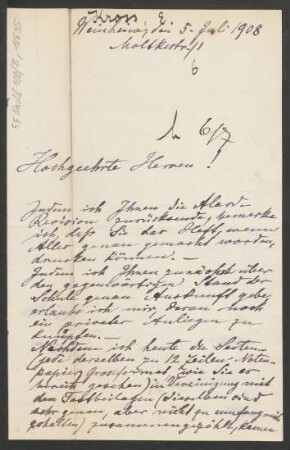 Kross E.
den 5. Juli 1908
Moltkestr. 1
6
h 6/7
Hochgeehrte Herren!
Indem ich Ihnen die Alard-
Revision zurücksende, bemerke
ich, daß Sie das Heft, wenn
Alles genau gemacht worden,
drucken können. —
Indem ich Ihnen zunächst über
den gegenwärtigen Stand der
Schule genau Auskunft gebe,
erlaube ich mir daran noch
ein privates Anliegen zu
knüpfen. —
Nachdem ich heute die Seiten-
zahl derselben zu 12 Zeilen-Noten-
papier Grossformat (wie Sie es
bereits gesehen) in Vereinigung mit
den Textbeilagen (dieselben sind
sehr genau, aber nicht zu umfangreich
gehalten) zusammengezählt, kamen